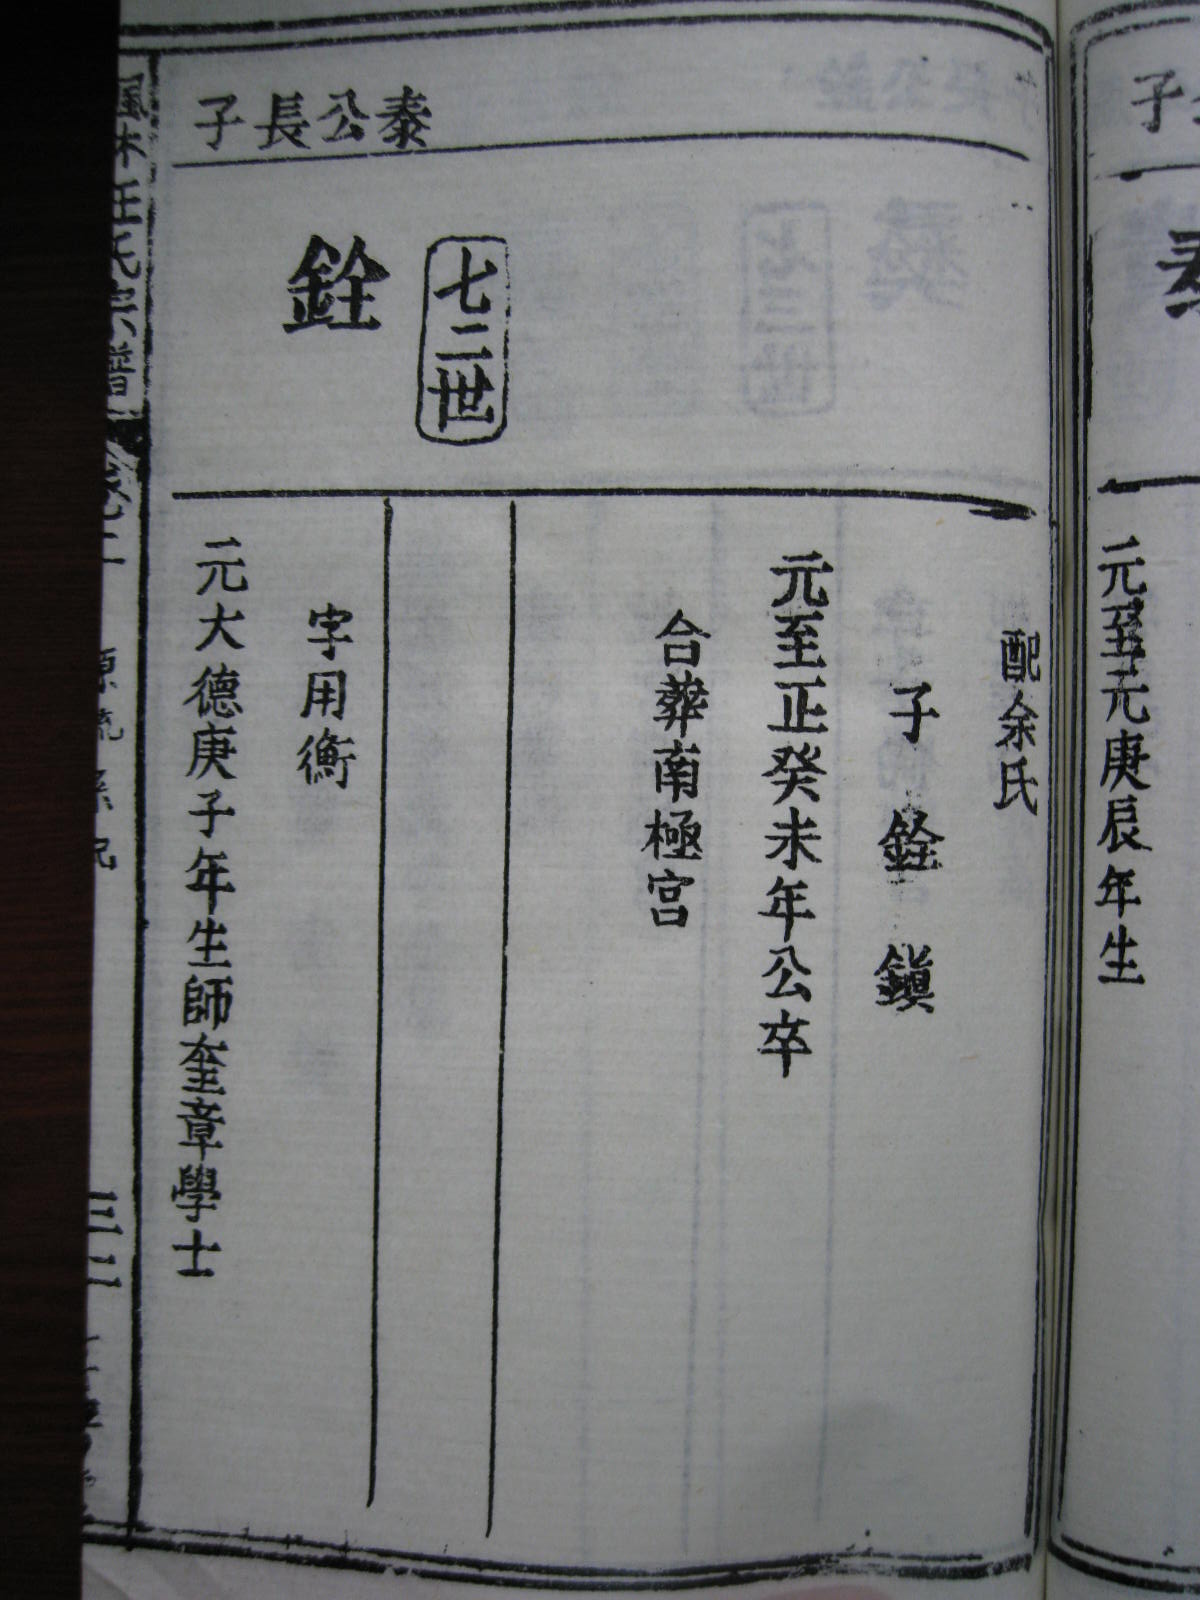 元至元庚辰年生
配余氏
子 銓 鎭
元至正癸未年公卒
合葬南極宮
泰公長子
七二世
銓
字用衡
元大德庚子年生師奎章學士
汪氏宗譜
卷二
源流系
三二